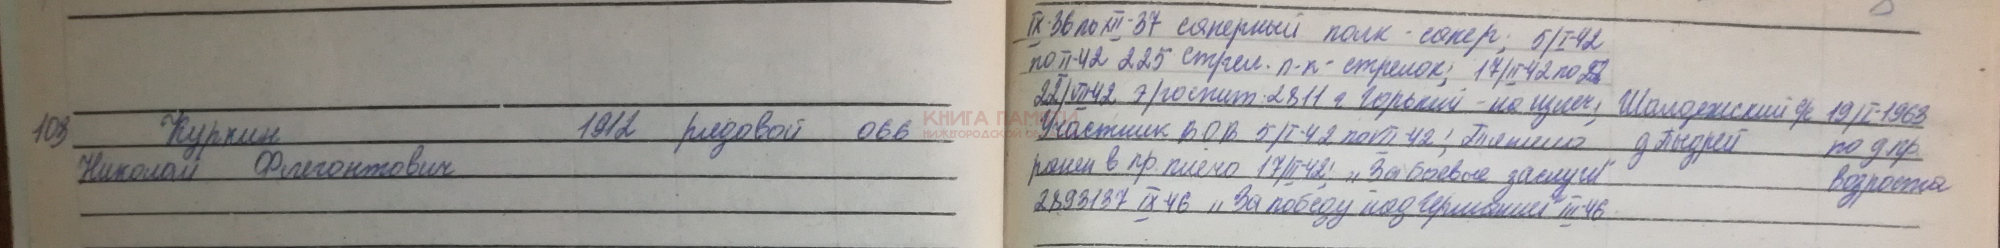 103 Куркин 1912 рядовой 066
Николай Флегонтович
КНИГА ПАМЯТИ
НИЖЕГОРОДСКОЙ
IX-36 по XII-37 саперный полк - сапер; 5/I-42
по II-42 225 стрел. п-к - стрелок; 17/II-42 по
22/VII-42 э/госпит. 2811 г. Горький - на излеч; Шалдежский 19/I-1963
Участник В.О.В 5/I-42 по 42; Тяжело по дпр
ранен в пр. плечо 17/II-42; "За боевые заслуги" возраста
2893137 IX-46 "За победу над Германией" III-46